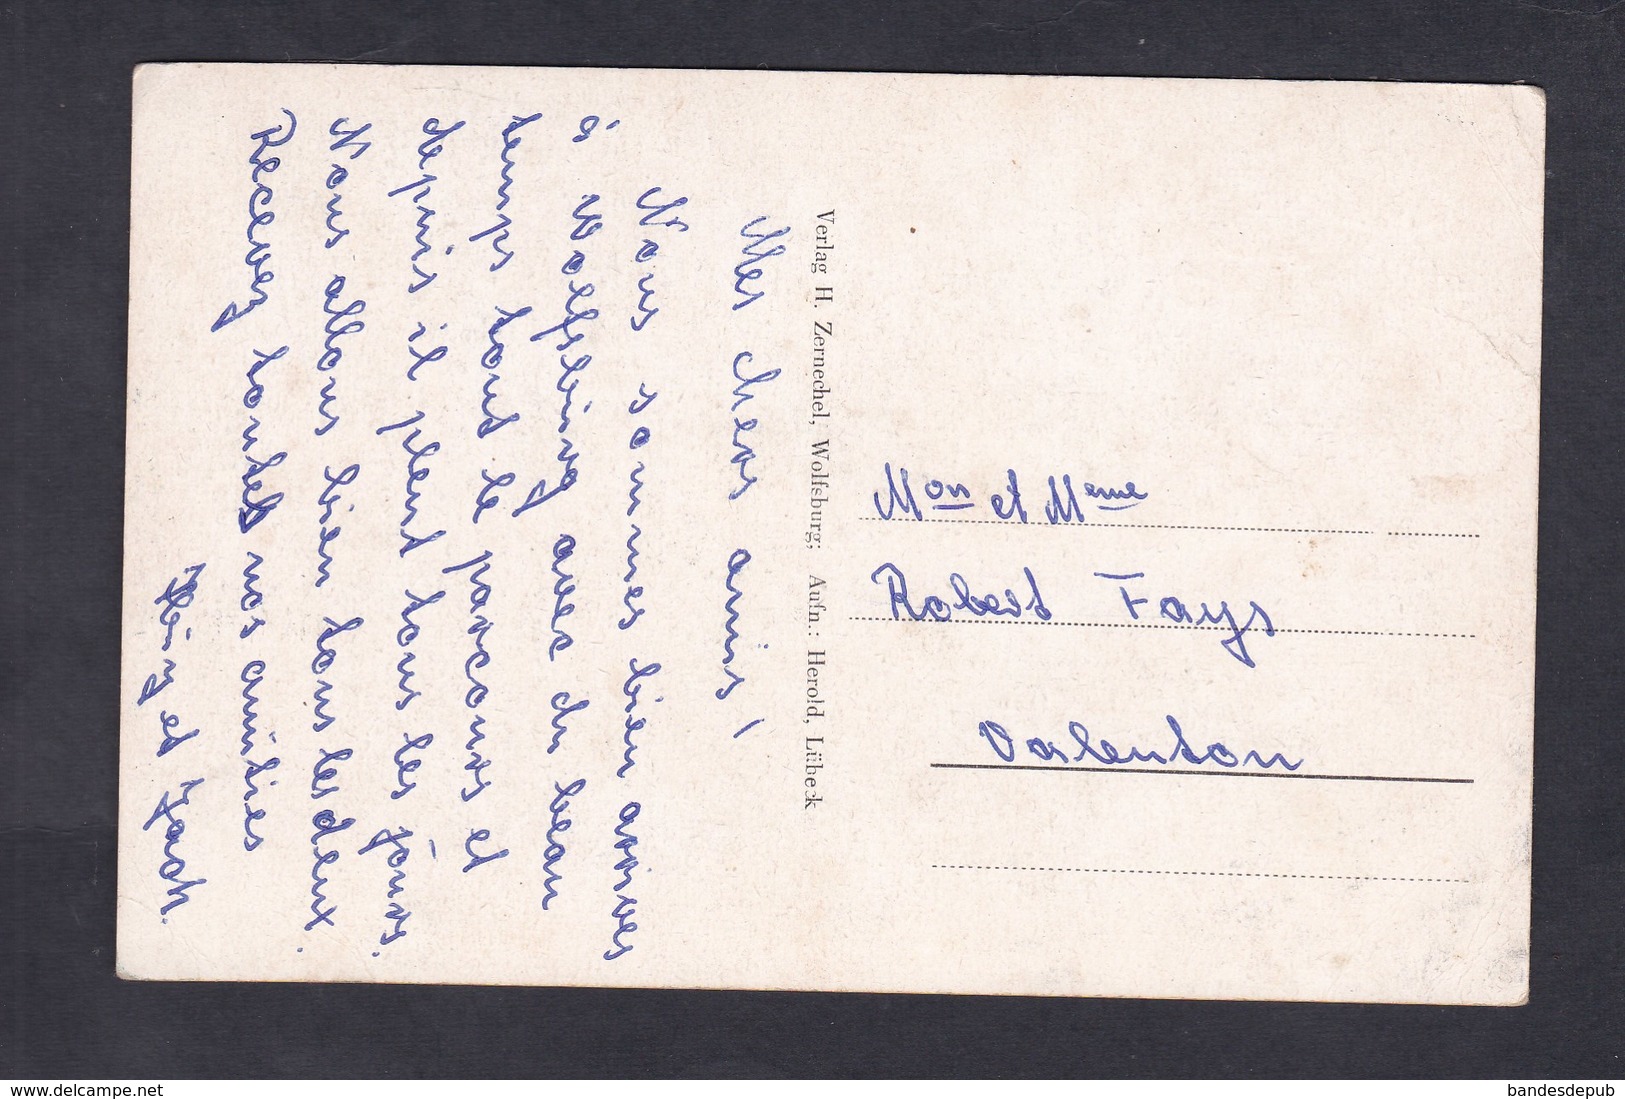 Mes chers amis!
Nous sommes bien arrives
à Wolfsburg avec du beau
temps tout le parcours et
depuis il pleut tous les jours.
Nous allons bien tous les deux.
Recevez toutes nos amities
et
Verlag H. Zernechel, Wolfsburg; Aufn.: Herold, Lübeck
Mon et Meme
Robert Fays
Valenton
www.delcampe.net
bandesdepub